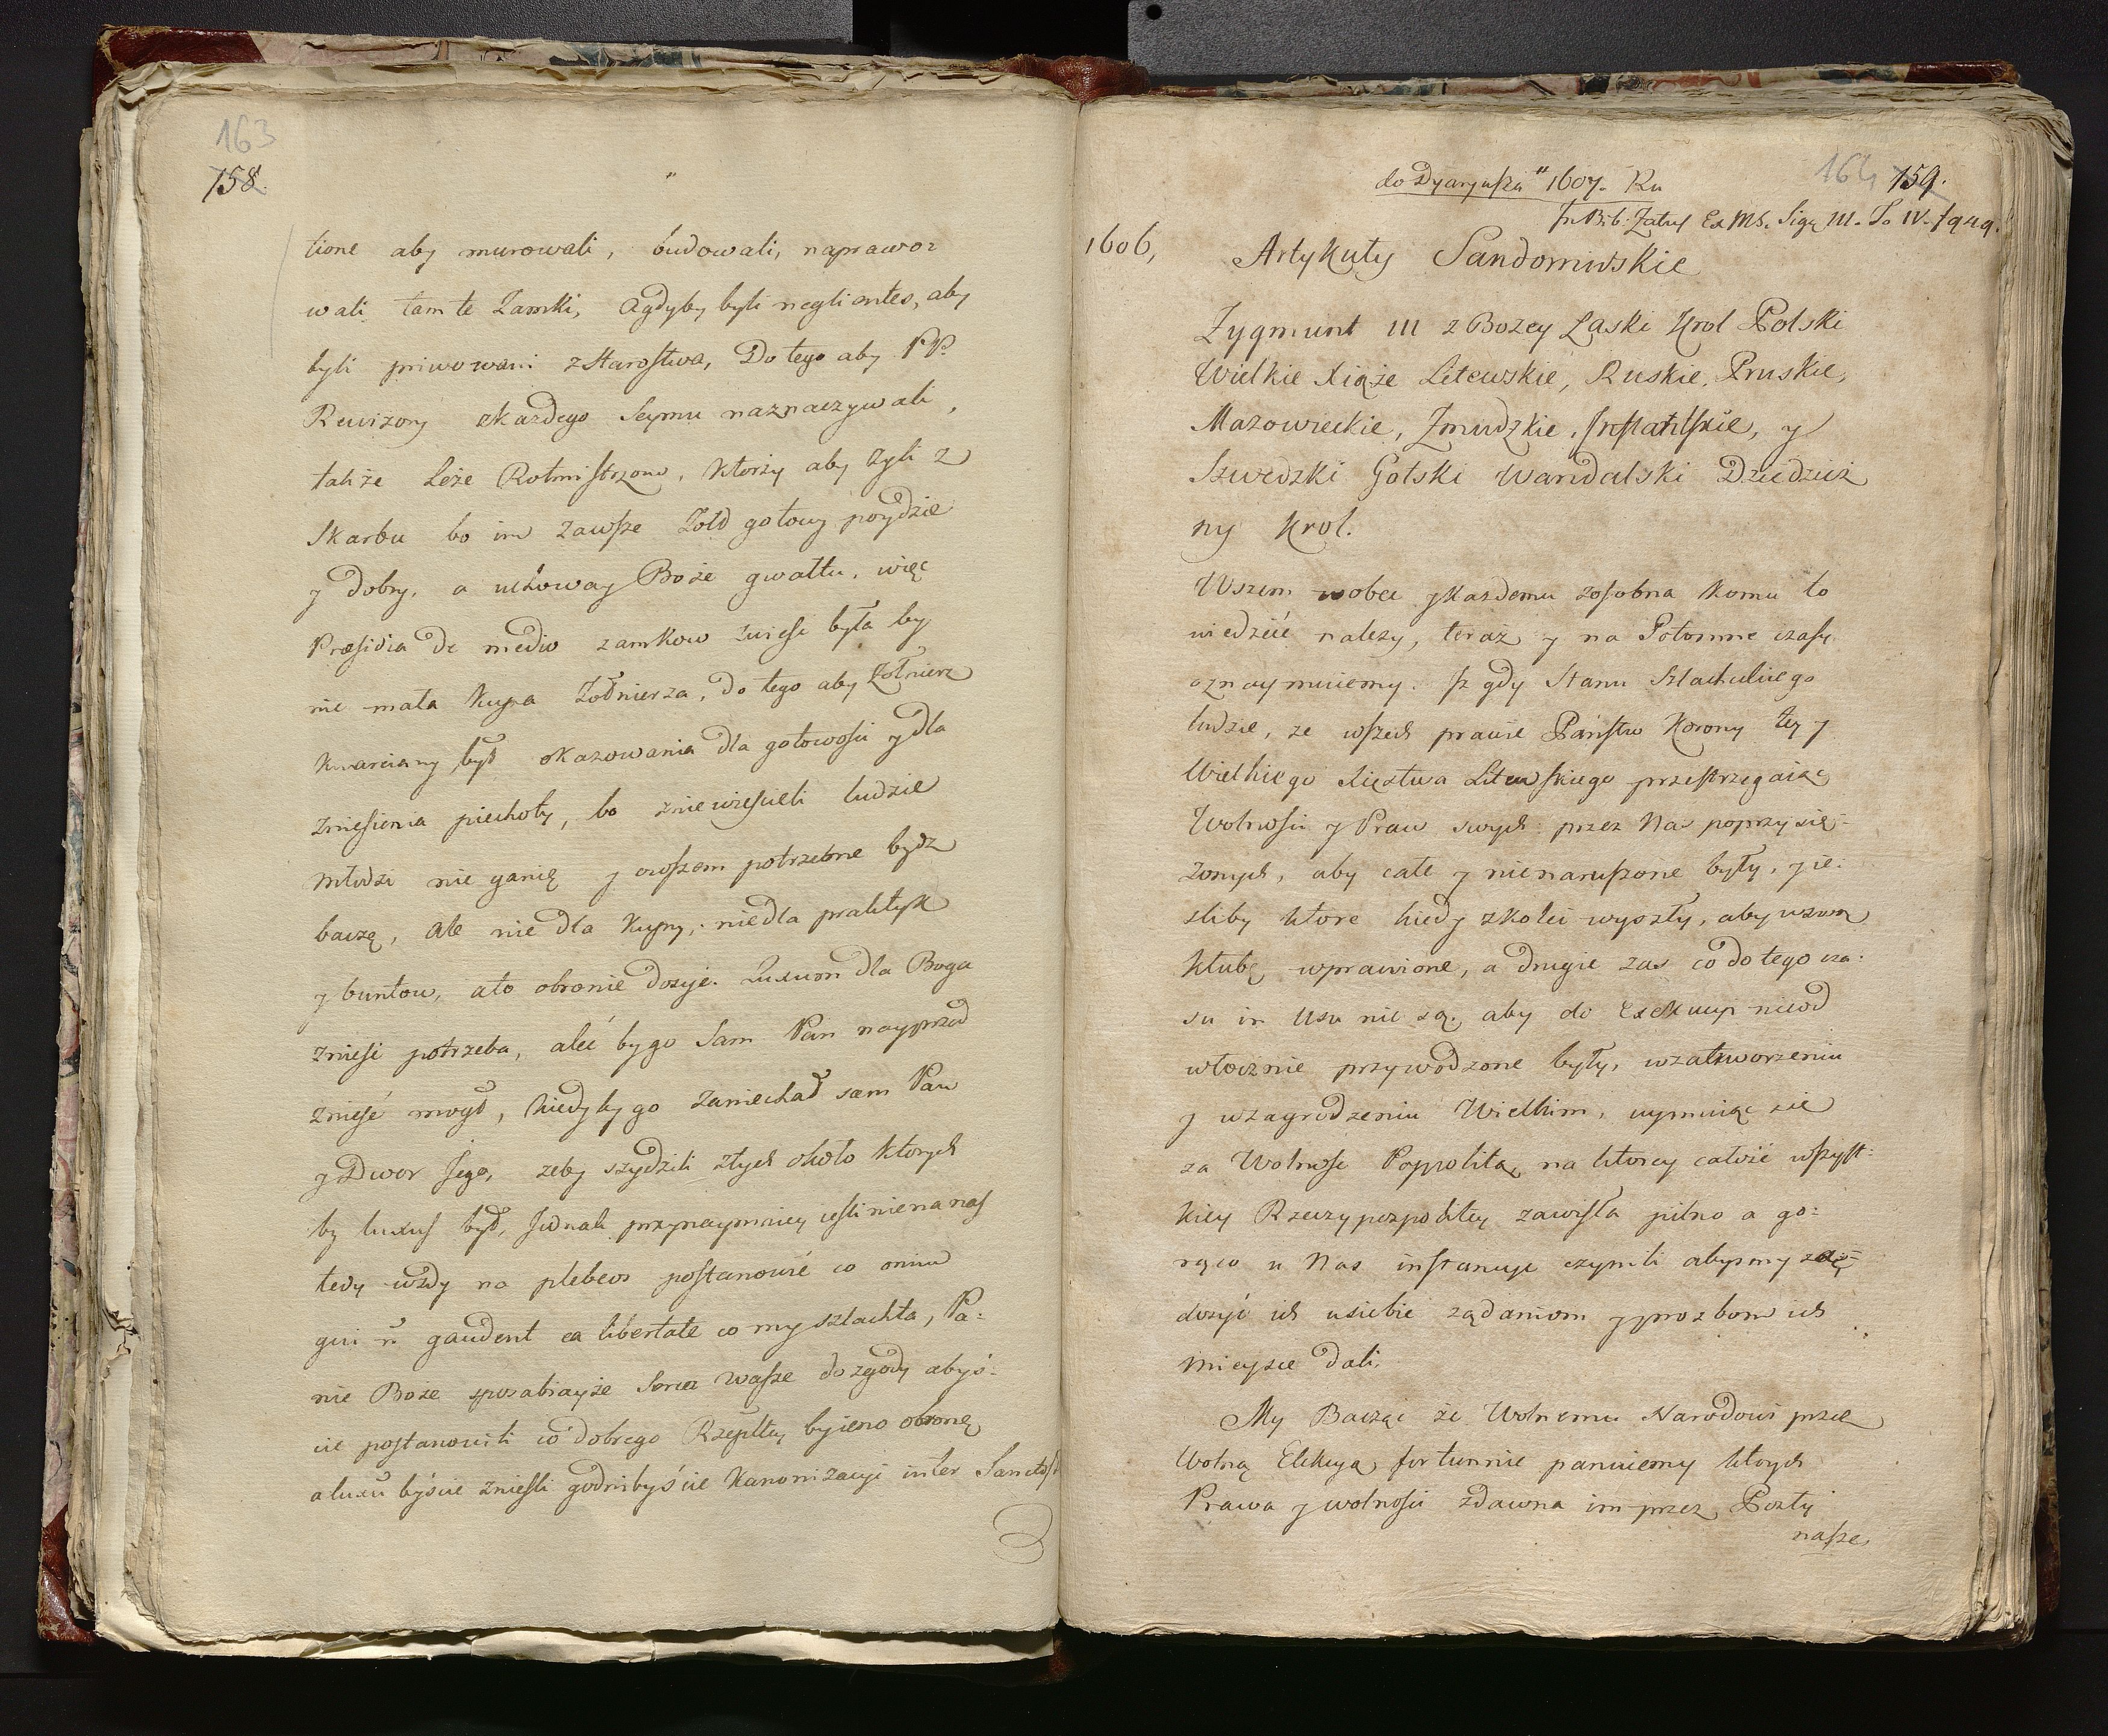 163
158.
tione aby murowali, budowali, naprawo=
wali tam te Zamki, Agdyby byli negliantes, aby
byli priwowani z Starostwa, Do tego aby PP.
Rewizory Każdego Seymu naznaczywali,
także Leże Rotmistrzow, Ktorzy aby zyli z
Skarbu bo im zawsze Zołd gotowy poydzie
y dobry, a uchoway Boże gwałtu, więc
Præsidia de medio zamkow zniesc była by
nie mała Kupa Zołnierza, do tego aby Zołnierz
Kwarciany był okazowania dla gotowości y dla
zniesienia piechoty, bo zniewiescieli ludzie
młodzi nie ganię y owszem potrzebne bydz
baczę, ale nie dla Kupy, nie dla praktyk
y buntow, ato obronie dosyć. Luxum dla Boga
zniesć potrzeba, aleć by go Sam Pan nayprzod
znieść mogł, kiedy by go zaniechał sam Pan
y Dwor Jego, zeby szydzili złych około Ktorych
by luxus był, Jednak przynaymniey iesli nie na nas
tedy wzdy na plebeos postanowić co omnia
gui n. gaudent ea libertate co my szlachta, Pa=
nie Boże sposabiayże Serca Wasze do zgody abyś=
cie postanowili co dobrego Rzeptey by ieno obronę
a luxū byście znieśli godni byście Kanonizacyi inter Sanctos
do Dyaryusza 1607. Ru
164 159.
In Bib. Zalus Ex MS. Sig. III. To IV. f 949.
1606,
Artykuły Sandomirskie
Zygmunt III z Bozey Łaski Krol Polski
Wielkie Xiąże Litewskie, Ruskie, Pruskie,
Mazowieckie, Zmudzkie, Inflantskie, y
Szwedzki Gotski Wandalski Dziedzicz
ny Krol.
Wszem wobec y Każdemu zosobna Komu to
wiedzieć nalezy, teraz y na Potomne czasy
oznaymuiemy. Iz gdy Stanu Szlacheckiego
ludzie, ze wszech prawie Państw Korony tey y
Wielkiego Xięstwa Litewskiego przestrzegaiąc
Wolności y Praw swych przez Nas poprzysię=
zonych, aby całe y nienaruszone były, y ie=
sliby ktore kiedy z kolei wyszły, aby w swą
Klubę wprawione, a drugie zas co do tego cza=
su in usu nie są, aby do Exekucyi nieod
włocznie przywodzone były, w zatworzeniu
y w zagrodzeniu Wielkim, uymuiąc sie
za Wolnosc Pospolitą, na ktorey całosc wszyst=
kiey Rzeczypospolitey zawisła pilno a go=
rąco u Nas instancye czynili abysmy
dosyć ich u siebie ządaniom y prozbom ich
mieysce dali.
My Bacząc że Wolnemu Narodowi przez
Wolną Elekcyą fortunnie panuiemy ktorych
Prawa y wolnosci zdawna im przez Pozty
nasze,